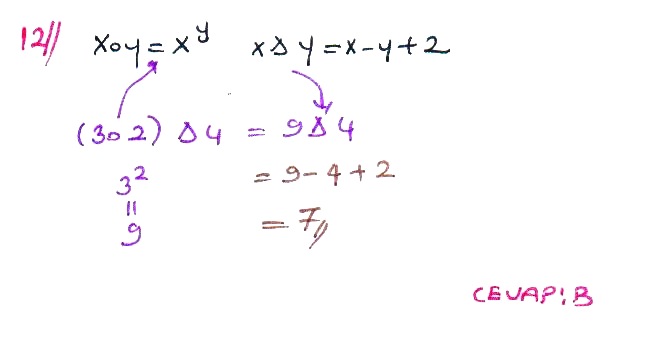 12// x∘y=x^y x∆y=x-y+2
(3∘2) ∆ 4 = 9∆4
3² = 9-4+2
= 7//
॥
9
CEVAP: B